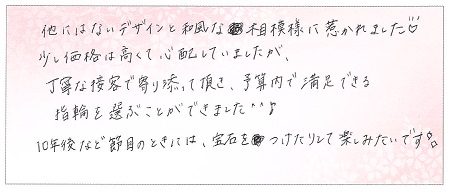 他にはないデザインと和風な相模様に惹かれました♡
少し価格は高くて心配していましたが、
丁寧な接客で寄り添って頂き、予算内で満足できる
指輪を選ぶことができました^^♪
10年後など節目のときには、宝石をつけたりして楽しみたいです♪